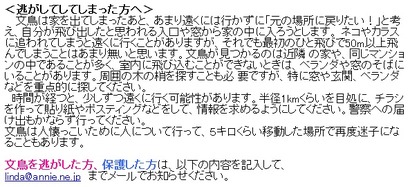 <逃がしてしてしまった方へ>
文鳥は家を出てしまったあと、あまり遠くには行かずに「元の場所に戻りたい!」と考
え、自分が飛び出したと思われる入口や窓から家の中に入ろうとします。ネコやカラス
に追われてしまうと遠くに行くことがありますが、それでも最初のひと飛びで50m以上飛
んでしまうことはあまり無いと思います。文鳥が見つかるのは近隣の家や、同じマンショ
ンの中であることが多く、室内に飛び込むことができないときは、ベランダや窓のそばに
いることがあります。周囲の木の梢を探すことも必要ですが、特に窓や玄関、ベランダ
などを重点的に探してください。
時間が経つと、少しずつ遠くに行く可能性があります。半径1kmくらいを目処に、チラシ
を作って貼り紙やポスティングなどをして、情報を求めるようにしてください。警察への届
け出もかならず行ってください。
文鳥は人懐っこいために人について行って、5キロくらい移動した場所で再度迷子にな
ることもあります。
文鳥を逃がした方、保護した方は、以下の内容を記入して、
linda@annie.ne.jp までメールでお知らせください。